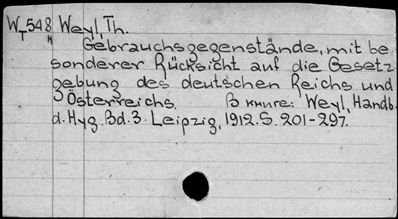 W 548 Weyl, Th.
T к
Gebrauchsgegenstände, mit be
sonderer Rücksicht auf die Gesetz
gebung des deutschen Reichs und
Österreichs. В книге: Weyl, Handb.
d. Hyg. Bd. 3. Leipzig, 1912. S. 201-297.